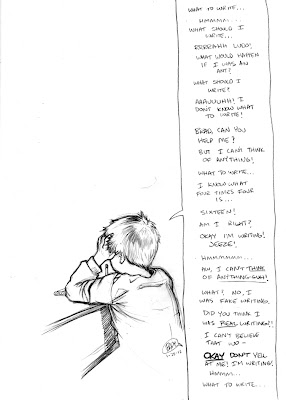 WHAT TO WRITE...
HMMMM...
WHAT SHOULD I
WRITE...
RRRRAHH LUDO!
WHAT WOULD HAPPEN
IF I WAS AN
ANT?
WHAT SHOULD I
WRITE?
AAAUUUHH! I
DON'T KNOW WHAT
TO WRITE!
BRAD, CAN YOU
HELP ME?
BUT I CAN'T THINK
OF ANYTHING!
WHAT TO WRITE...
I KNOW WHAT
FOUR TIMES FOUR
IS...
SIXTEEN!
AM I RIGHT?
OKAY I'M WRITING!
JEEZE!
HMMMMMM...
AW, I CAN'T THINK
OF ANYTHING-GUH!
WHAT? NO, I
WAS FAKE WRITING.
DID YOU THINK I
WAS REAL WRITING?!
I CAN'T BELIEVE
THAT YOU -
OKAY DON'T YELL
AT ME! I'M WRITING!
HMMM...
WHAT TO WRITE...